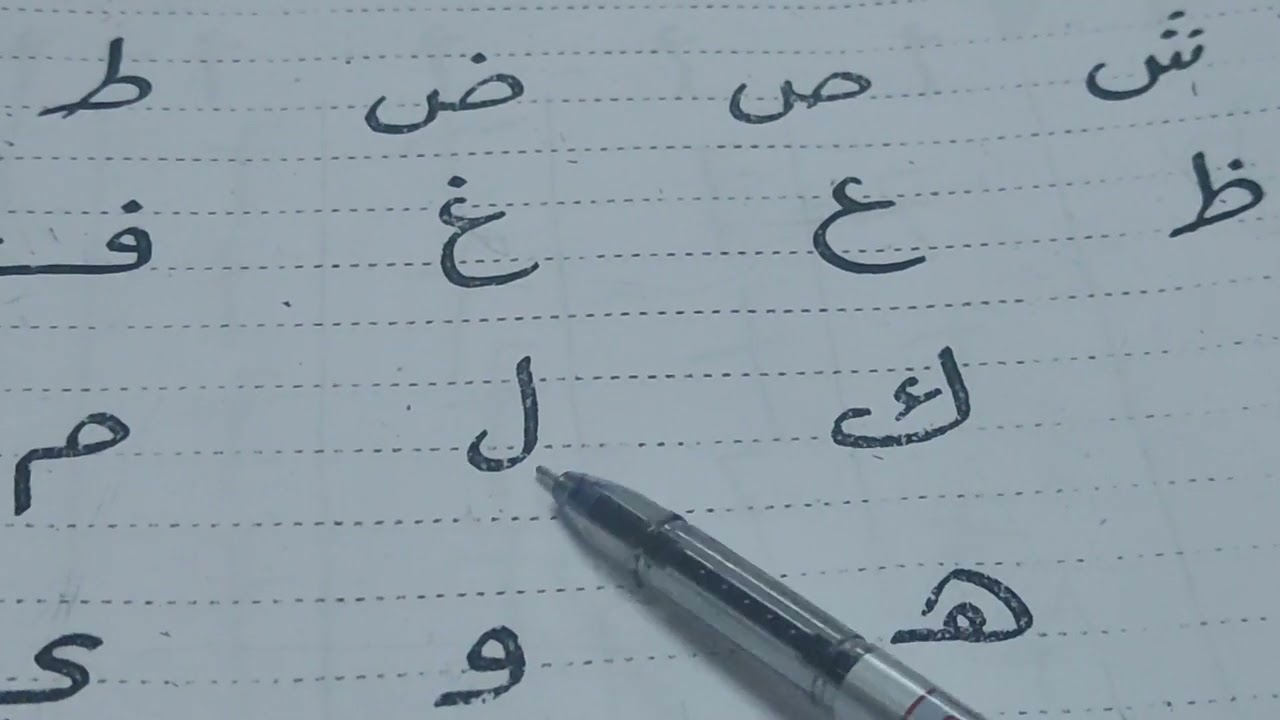 ش ص ض ط
ظ ع غ ف
ك ل م
ه و ى